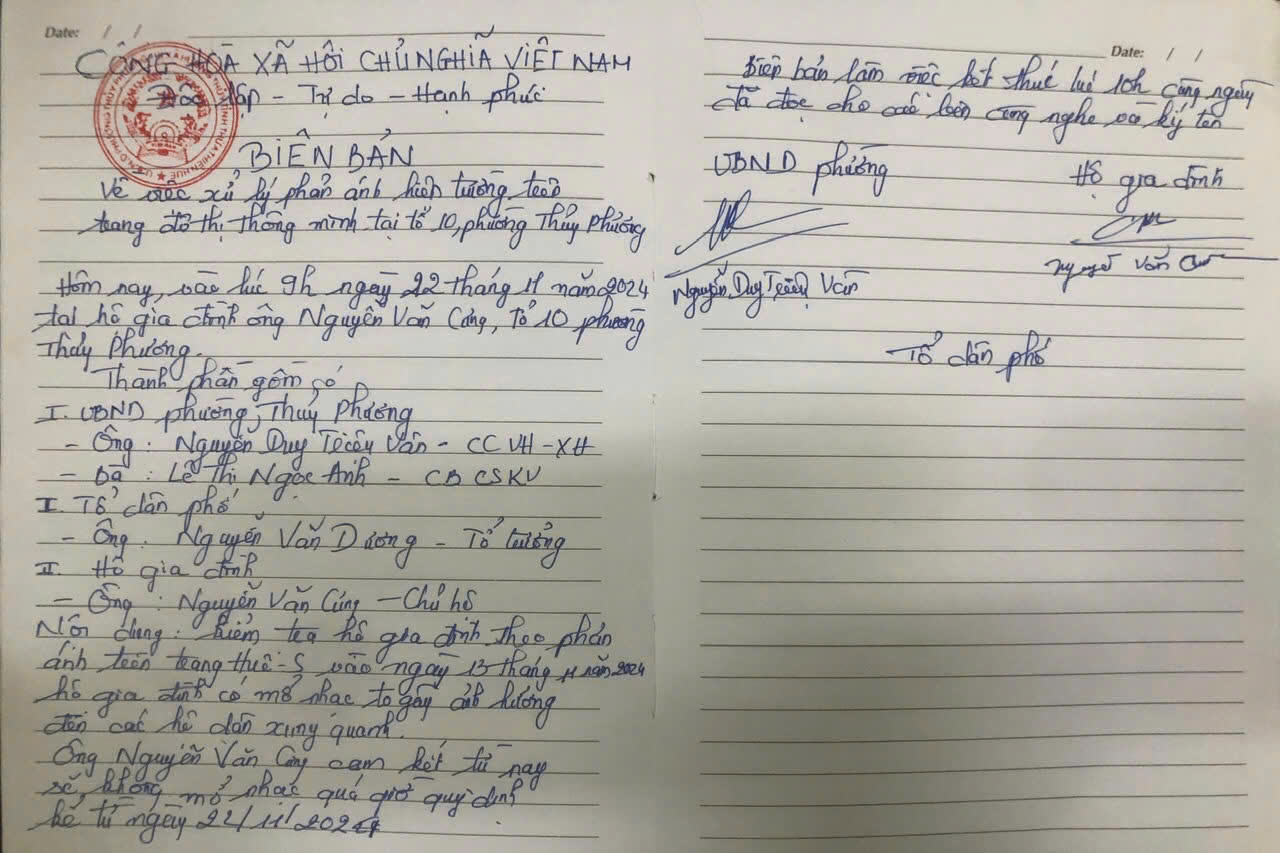 Date: / /
CỘNG HOÀ XÃ HỘI CHỦ NGHĨA VIỆT NAM
Độc lập - Tự do - Hạnh phúc
BIÊN BẢN
Về việc xử lý phản ánh hiện tượng trên
trang đô thị thông minh tại tổ 10, phường Thủy Phương
Hôm nay, vào lúc 9h ngày 22 tháng 11 năm 2024
tại hộ gia đình ông Nguyễn Văn Cúng, Tổ 10 phường
Thủy Phương.
Thành phần gồm có
I. UBND phường Thủy Phương
- Ông: Nguyễn Duy Triều Vân - CC VH-XH
- Bà: Lê Thị Ngọc Anh - CB CSKV
I. Tổ dân phố
- Ông. Nguyễn Văn Dương - Tổ trưởng
II. Hộ gia đình
- Ông: Nguyễn Văn Cúng - Chủ hộ
Nội dung: kiểm tra hộ gia đình theo phản
ánh trên trang Huế-S vào ngày 13 tháng 11 năm 2024
hộ gia đình có mở nhạc to gây ảnh hưởng
đến các hộ dân xung quanh.
Ông Nguyễn Văn Cúng cam kết từ nay
sẽ không mở nhạc quá giờ quy định
kể từ ngày 22/11/2024
Date: / /
Biên bản làm việc kết thúc lúc 10h cùng ngày
đã đọc cho các bên cùng nghe và ký tên
UBND phường
Hộ gia đình
Nguyễn Duy Triều Vân
Nguyễn Văn
Tổ dân phố